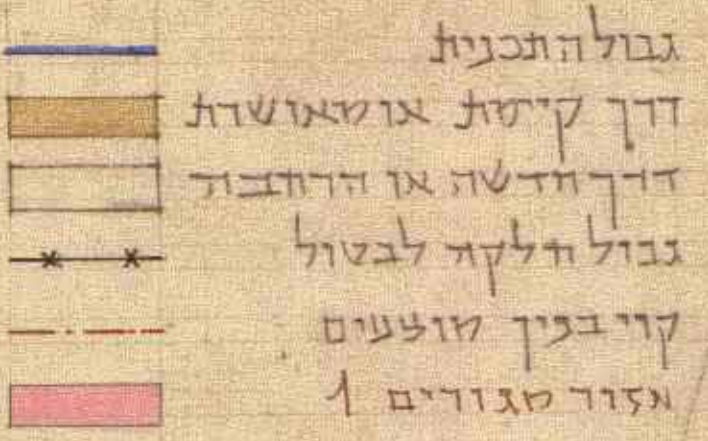 גבול התכנית
דרך קיימת או מאושרת
דרך חדשה או הרחבה
גבול חלקה לבטול
קוי בנין מוצעים
אזור מגורים 1